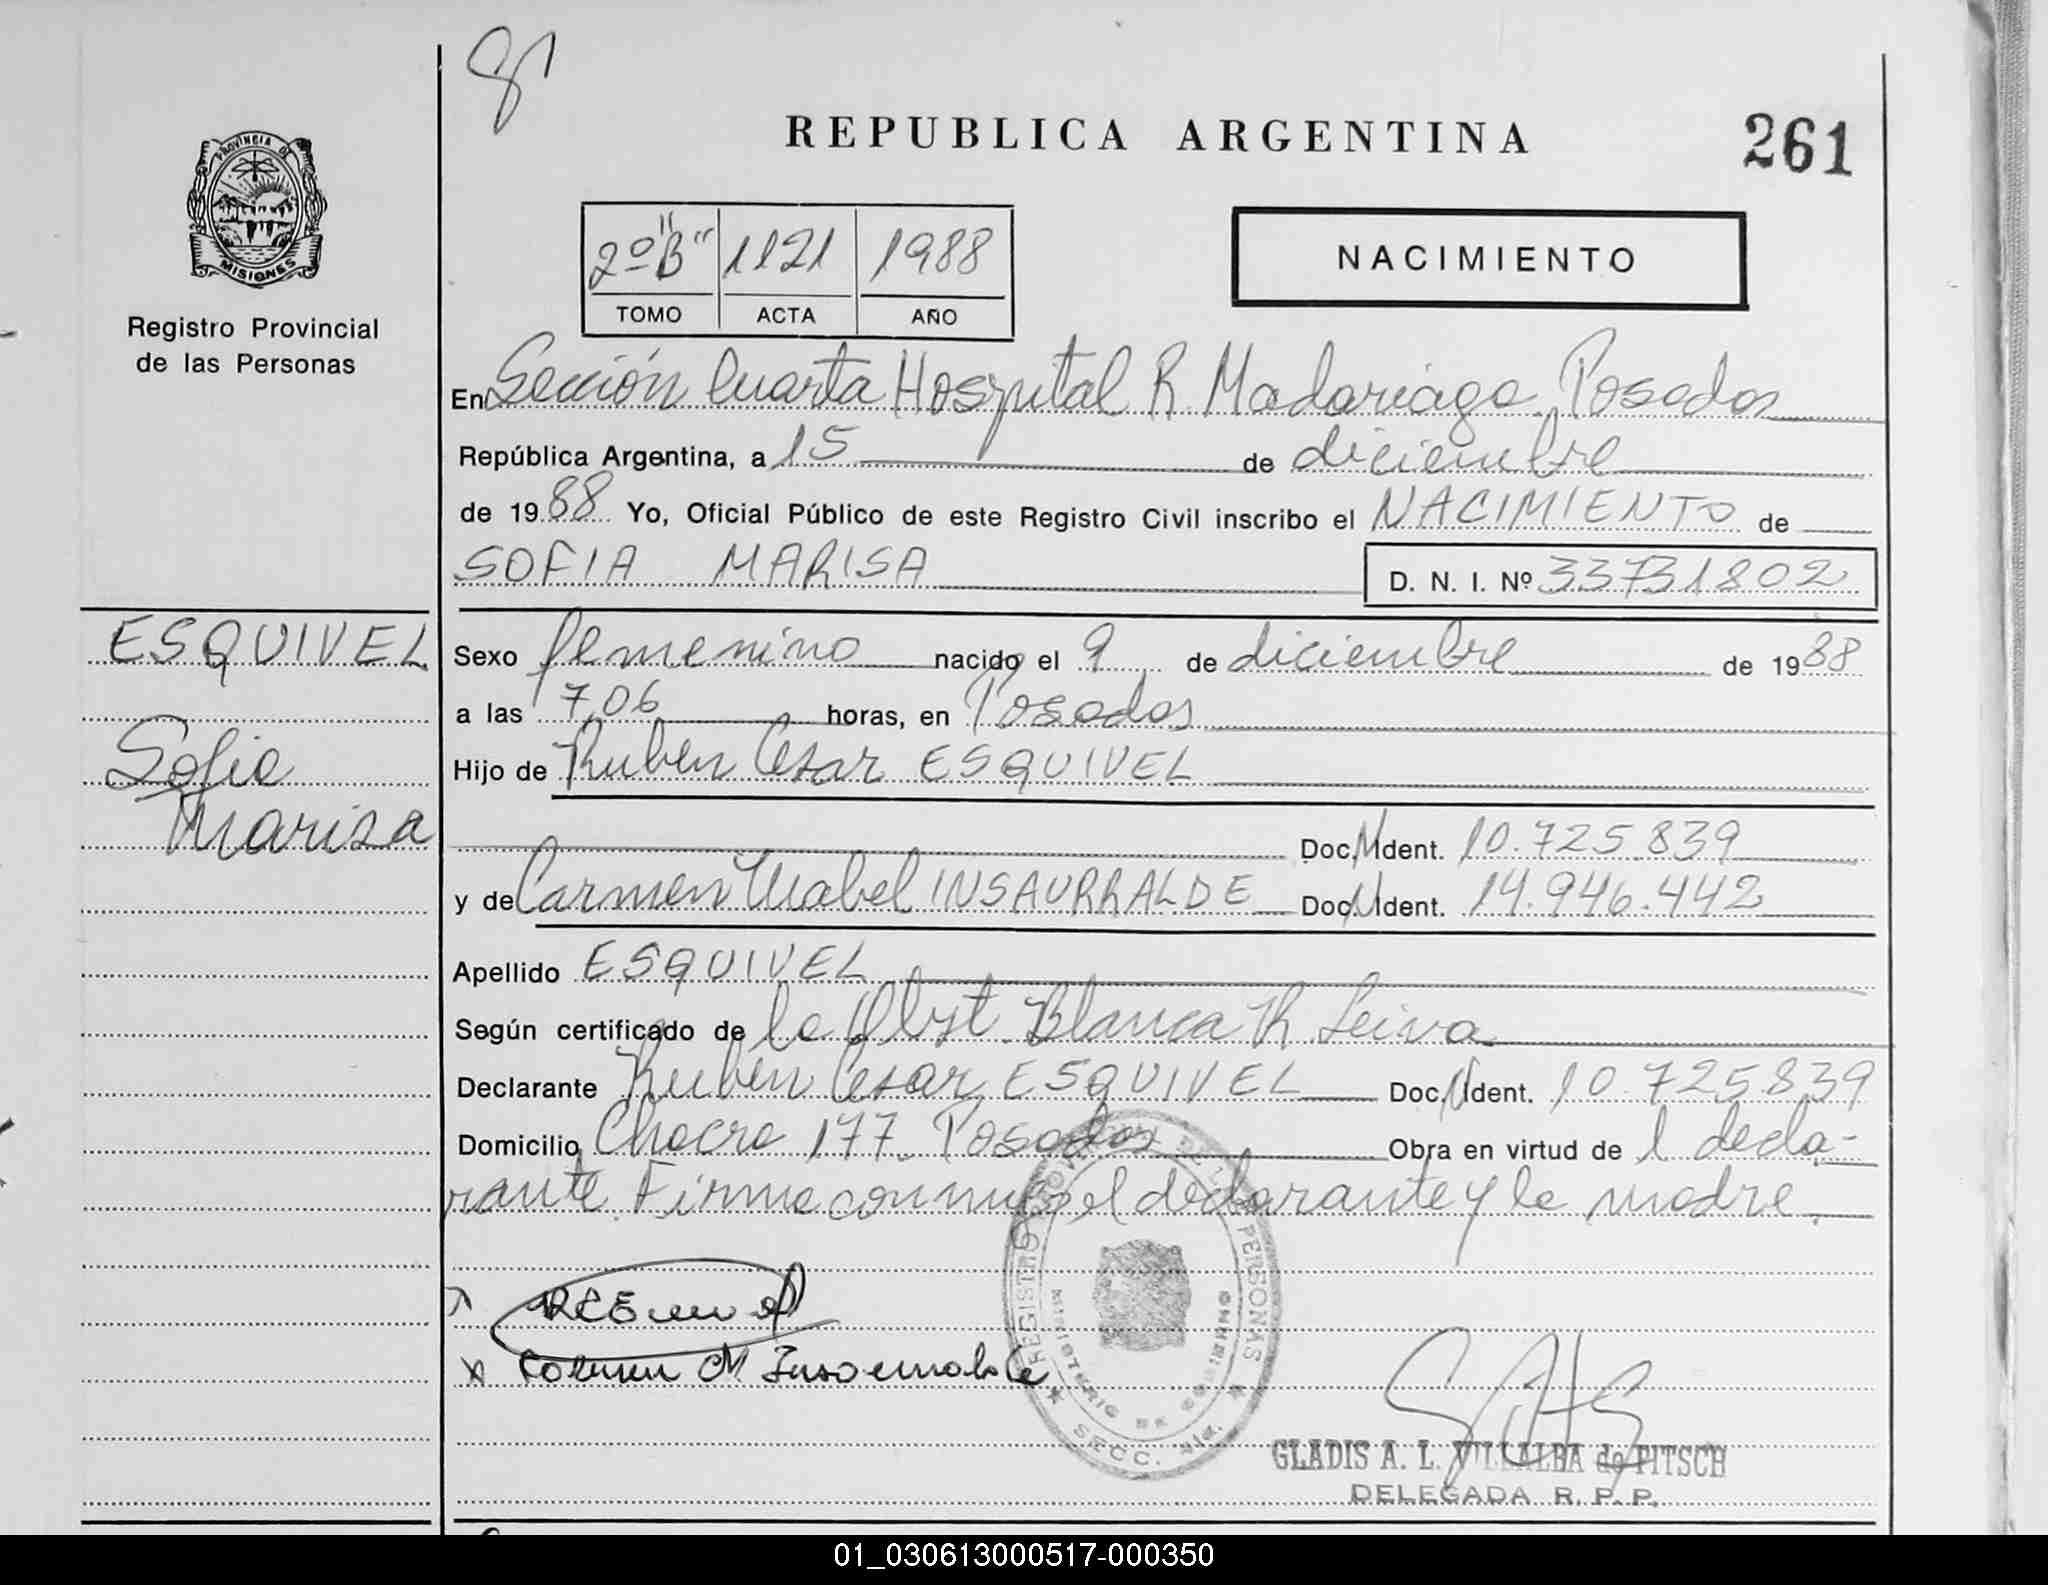 81
REPUBLICA ARGENTINA
261
PROVINCIA DE
MISIONES
Registro Provincial
de las Personas
2º "B" 1121 1988
TOMO ACTA AÑO
NACIMIENTO
En Sección Cuarta Hospital R. Madariaga, Posadas
República Argentina, a 15 de diciembre
de 1988 Yo, Oficial Público de este Registro Civil inscribo el NACIMIENTO de
SOFIA MARISA D. N. I. Nº 33731802
ESQUIVEL
Sofia
Marisa
Sexo femenino nacido el 9 de diciembre de 1988
a las 7,06 horas, en Posadas
Hijo de Ruben Cesar ESQUIVEL
Doc. N Ident. 10.725.839
y de Carmen Mabel INSAURRALDE Doc. N Ident. 14.946.442
Apellido ESQUIVEL
Según certificado de la Obst. Blanca R. Leiva
Declarante Ruben Cesar ESQUIVEL Doc. N Ident. 10.725.839
Domicilio Chacra 177. Posadas Obra en virtud de l decla-
rante. Firma conmigo el declarante y la madre.
REGISTRO PROVINCIAL DE LAS PERSONAS
MINISTERIO DE GOBIERNO
SECC. 4ta.
GLADIS A. L. VILLALBA de FITSCH
DELEGADA R. P. P.
01_030613000517-000350